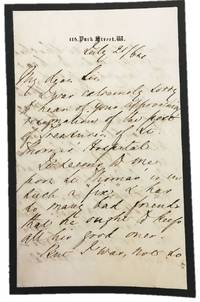 115, Park Street, W.
July 21/60
My dear Sir
I was extremely sorry
to hear of your
resignation of the post
of Treasurer of St
Thomas's Hospital.
poor St Thomas is in
such a fix & has
so many bad friends
that he ought to keep
all his good ones.
But I was not so